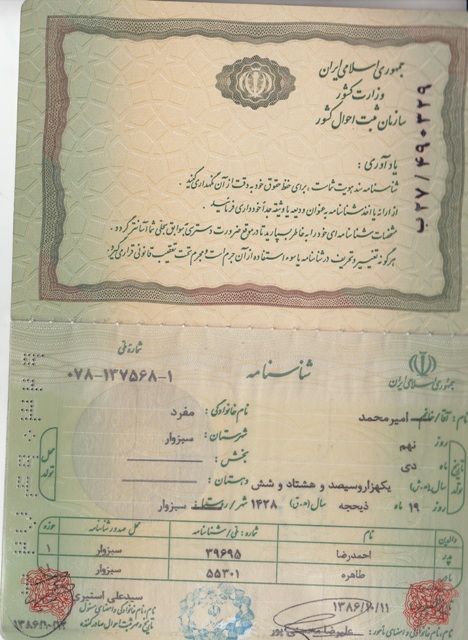 جمهوری اسلامی ایران
وزارت کشور
سازمان ثبت احوال کشور
ب۲۷/۴۹۰۳۲۹
یادآوری :
شناسنامه سند هویت شماست ، برای حفظ حقوق خود به دقت از آن نگهداری کنید .
از ارائه یا اخذ شناسنامه به عنوان ودیعه یا وثیقه جداً خودداری فرمائید .
مشخصات شناسنامه ای خود را به خاطر بسپارید تا در موقع ضرورت دسترسی به سوابق سجلی شما آسانتر گردد .
هرگونه تغییر و تحریف در شناسنامه یا سوء استفاده از آن جرم است و مجرم تحت تعقیب قانونی قرار می‌گیرد .
جمهوری اسلامی ایران
شناسنامه
شماره ملی
۰۷۸-۱۳۷۵۶۸-۱
نام : آقا/خانم امیرمحمد
نام خانوادگی : مفرد
تولد
روز نهم
ماه دی
سال (ه.ش) یکهزاروسیصد و هشتاد و شش
۱۹ ماه ذیحجه سال (ه.ق) ۱۴۲۸
محل تولد
شهرستان : سبزوار
بخش :
دهستان :
شهر/روستا سبزوار
والدین نام شماره : ملی/شناسنامه محل صدور شناسنامه حوزه
پدر احمدرضا ۳۹۶۹۵ سبزوار ۱
مادر طاهره ۵۵۳۰۱ سبزوار
۱۳۸۶/۱۰/۱۱
نام، نام خانوادگی و امضای مأمور : علیرضا
سیدعلی استیری
نام، نام خانوادگی و امضای مسئول